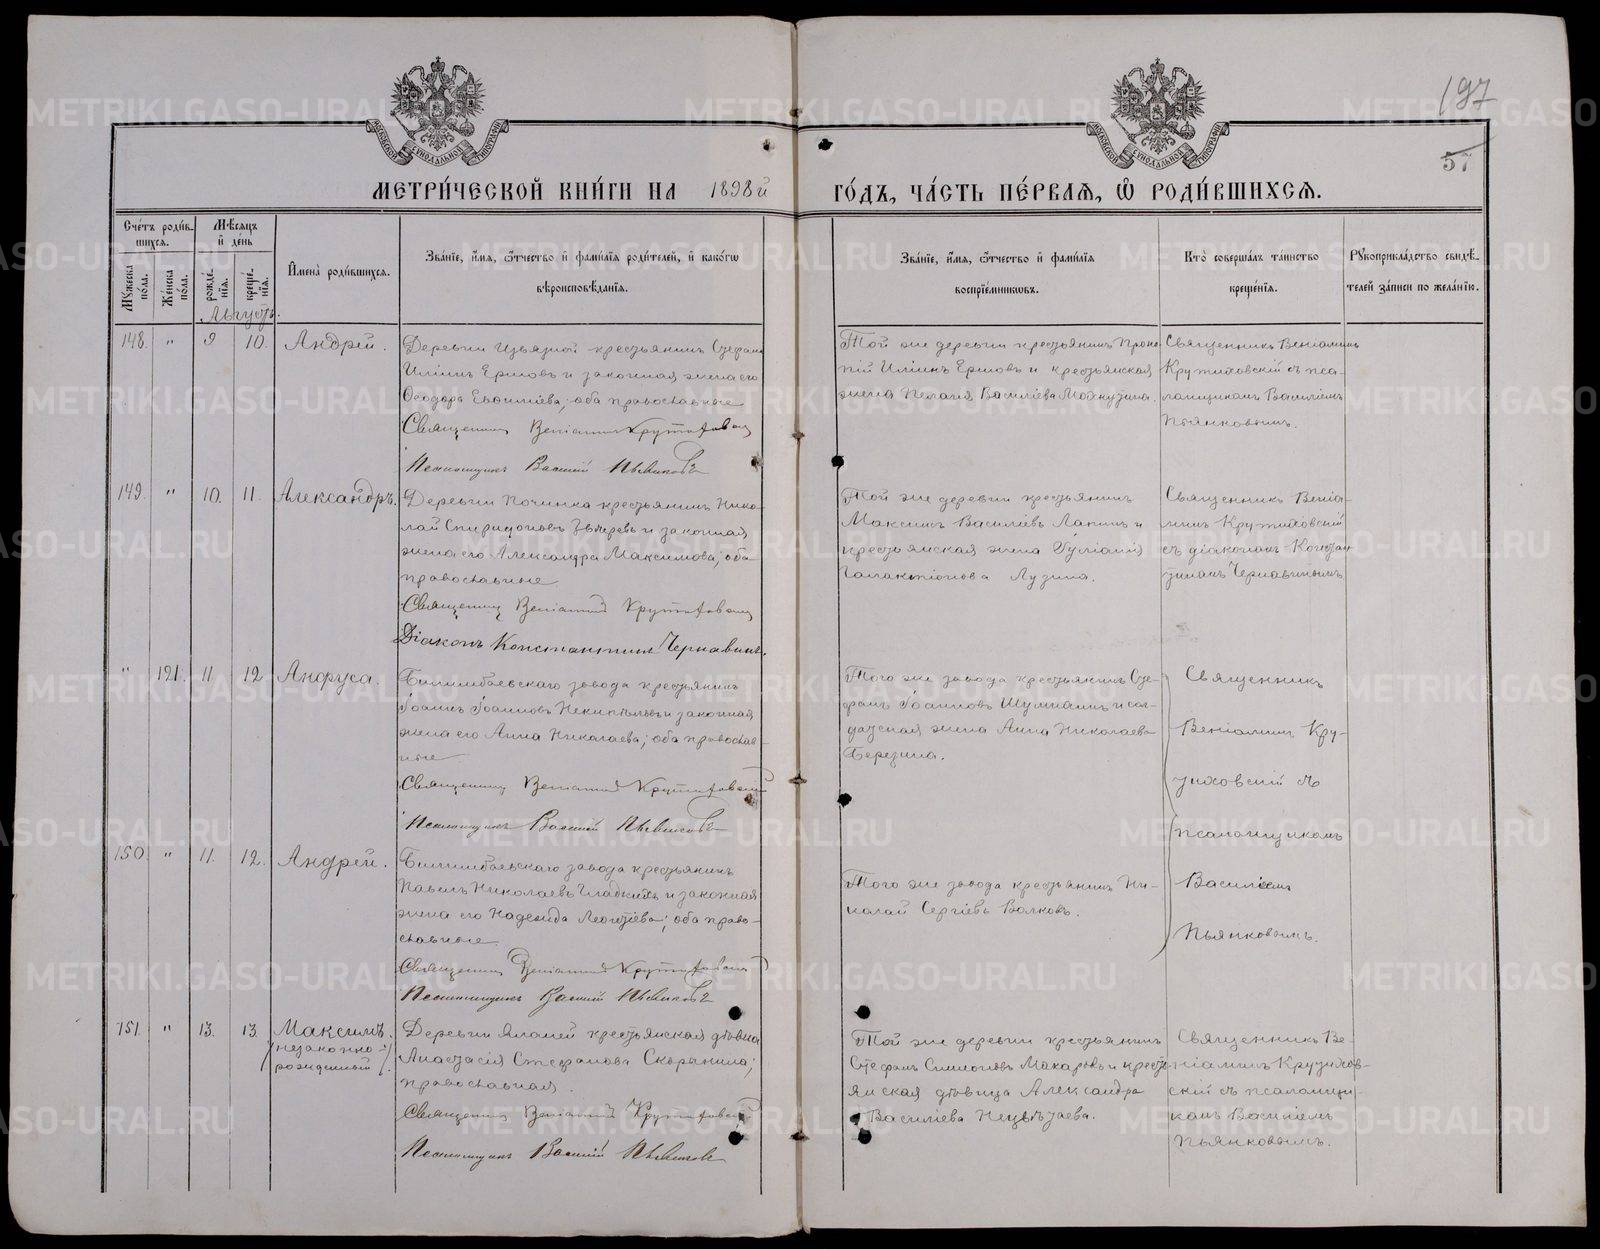 197
57
МЕТРИ́ЧЕСКОЙ КНИ́ГИ НА 1898й ГО́ДЪ, ЧА́СТЬ ПЕ́РВАЯ, Ѡ РОДИ́ВШИХСЯ.
Сче́тъ роди́в-
шихся.
Му́жеска по́ла.
Же́нска по́ла.
Мѣ́сяцъ
и де́нь
рожде́нія.
креще́нія.
Имена̀ роди́вшихся.
Зва́ніе, и́мя, ѻ҆́тчество и фами́лія роди́телей, и како́гѡ
вѣроисповѣ́данія.
Зва́ніе, и́мя, ѻ҆́тчество и фами́лія
воспріе́мниковъ.
Кто̀ соверша́лъ та́инство
креще́нія.
Рукоприкла́дство свидѣ́-
телей за́писи по жела́нію.
Августъ.
148. " 9 10. Андрей.
Деревни Извязной крестьянинъ Стефанъ
Илiинъ Ершовъ и законная жена его
Ѳеодора Евѳимiева; оба православные
Священникъ Венiаминъ Крутиховскiй
Псаломщикъ Василiй Пьянковъ
Той же деревни крестьянинъ Проко-
пiй Илiинъ Ершовъ и крестьянская
жена Пелагiя Василiева
Священникъ Венiаминъ
Крутиховскiй съ пса-
ломщикомъ Василiемъ
Пьянковымъ.
149. " 10. 11. Александръ.
Деревни Починка крестьянинъ Нико-
лай Спиридоновъ Звѣревъ и законная
жена его Александра Максимова; оба
православные
Священникъ Венiаминъ Крутиховскiй
Дiаконъ Константинъ Чернавинъ.
Той же деревни крестьянинъ
Максимъ Василiевъ Лапинъ и
крестьянская жена Iулiанiя
Галактiонова Лузина.
Священникъ Венiа-
минъ Крутиховскiй
съ дiакономъ Констан-
тиномъ Чернавинымъ
" 121. 11 12 Анфуса.
Билимбаевскаго завода крестьянинъ
Iоаннъ Iоанновъ Некипѣловъ и законная
жена его Анна Николаева; оба православ-
ные
Священникъ Венiаминъ Крутиховскiй
Псаломщикъ Василiй Пьянковъ
Того же завода крестьянинъ Сте-
фанъ Iоанновъ Шумнинъ и сол-
датская жена Анна Николаева
Березина.
Священникъ
Венiаминъ Кру-
тиховскiй съ
псаломщикомъ
Василiемъ
Пьянковымъ.
150. " 11. 12. Андрей.
Билимбаевскаго завода крестьянинъ
Павелъ Николаевъ Гладкихъ и законная
жена его Надежда Леонтiева; оба право-
славные
Священникъ Венiаминъ Крутиховскiй
Псаломщикъ Василiй Пьянковъ
Того же завода крестьянинъ Ни-
колай Сергiевъ Волковъ.
151. " 13. 13. Максимъ.
/незаконно-
рожденный/.
Деревни Яланей крестьянская дѣвица
Анастасiя Стефанова Скорынина;
православная.
Священникъ Венiаминъ Крутиховскiй
Псаломщикъ Василiй Пьянковъ
Той же деревни крестьянинъ
Стефанъ Симеоновъ Макаровъ и кресть-
янская дѣвица Александра
Василiева Нецвѣтаева.
Священникъ Ве-
нiаминъ Крутихов-
скiй съ псаломщи-
комъ Василiемъ
Пьянковымъ.
METRIKI.GASO-URAL.RU